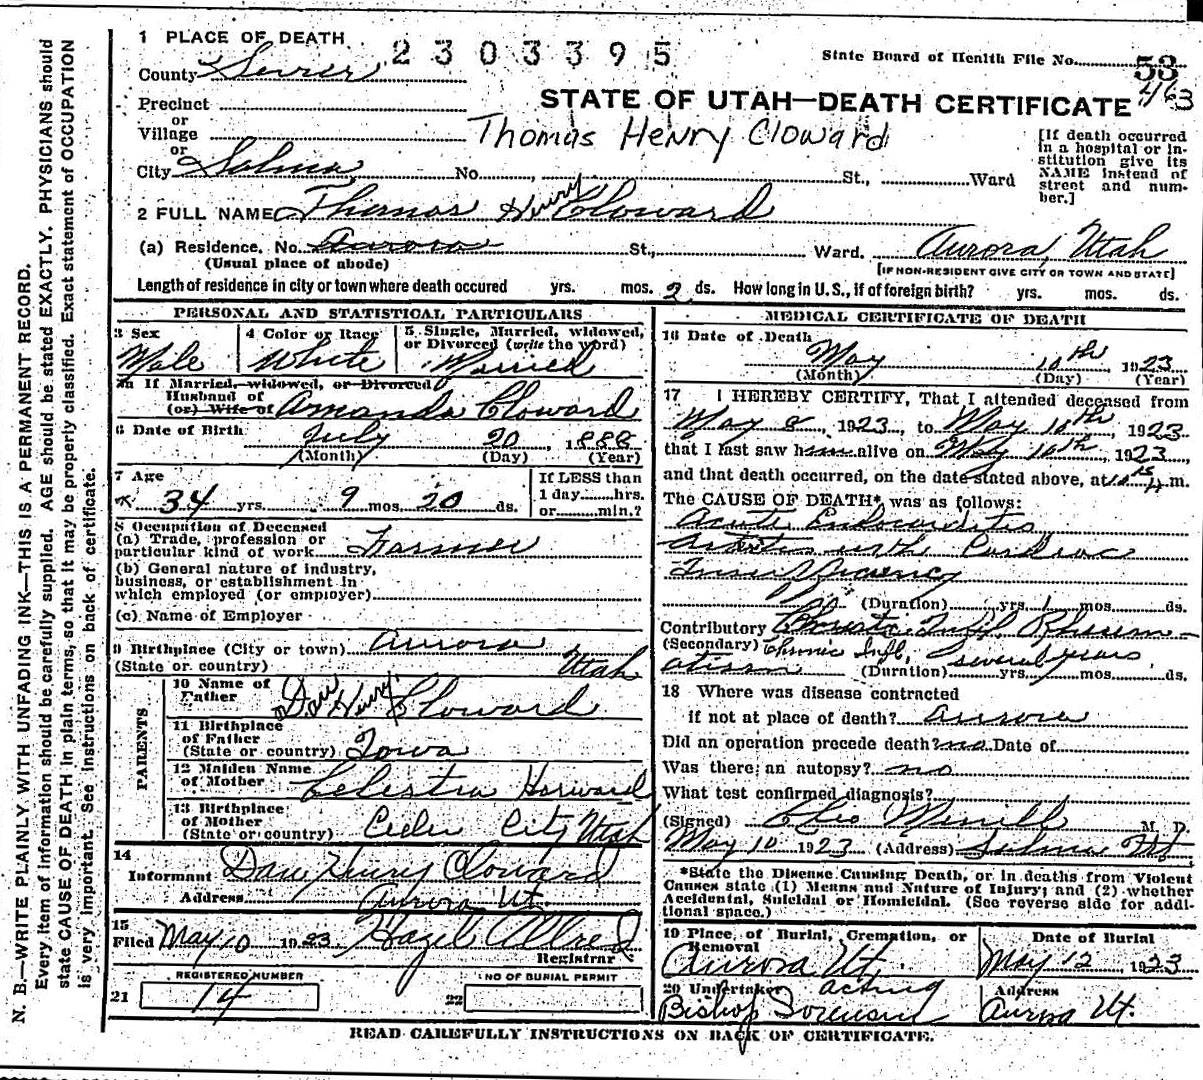 1 PLACE OF DEATH
2303395
State Board of Health File No. 53
463
County Sevier
STATE OF UTAH—DEATH CERTIFICATE
Precinct
or
Village
Thomas Henry Cloward
or
City Salina No. St., Ward
[If death occurred
in a hospital or in-
stitution give its
NAME instead of
street and num-
ber.]
2 FULL NAME Thomas Henry Cloward
(a) Residence. No. Aurora St., Ward. Aurora, Utah
(Usual place of abode) [IF NON-RESIDENT GIVE CITY OR TOWN AND STATE]
Length of residence in city or town where death occured yrs. mos. 2 ds. How long in U. S., if of foreign birth? yrs. mos. ds.
PERSONAL AND STATISTICAL PARTICULARS
3 Sex
Male
4 Color or Race
White
5 Single, Married, widowed,
or Divorced (write the word)
Married
5a If Married, widowed, or Divorced
Husband of
(or) Wife of Amanda Cloward
6 Date of Birth July 20 1888
(Month) (Day) (Year)
7 Age
34 yrs. 9 mos. 20 ds.
If LESS than
1 day hrs.
or min.?
8 Occupation of Deceased
(a) Trade, profession or
particular kind of work Farmer
(b) General nature of industry,
business, or establishment in
which employed (or employer)
(c) Name of Employer
9 Birthplace (City or town) Aurora
(State or country) Utah
PARENTS
10 Name of
Father Dan Henry Cloward
11 Birthplace
of Father
(State or country) Iowa
12 Maiden Name
of Mother Celestia Harward
13 Birthplace
of Mother
(State or country) Ceder City Utah
14
Informant Dan Henry Cloward
Address Aurora Ut.
15
Filed May 10 1923 Hazel Allred
Registrar
REGISTERED NUMBER
21 14
NO OF BURIAL PERMIT
22
MEDICAL CERTIFICATE OF DEATH
16 Date of Death
May 10th, 1923
(Month) (Day) (Year)
17 I HEREBY CERTIFY, That I attended deceased from
May 8, 1923, to May 10th, 1923
that I last saw him alive on May 10th, 1923,
and that death occurred, on the date stated above, at m.
The CAUSE OF DEATH* was as follows:
Acute Endocarditis
with Cardiac
Insufficiency
(Duration) yrs. 1 mos. ds.
Contributory Infl. Rheum-
(Secondary) Chronic Infl, several years
atism (Duration) yrs. mos. ds.
18 Where was disease contracted
if not at place of death? Aurora
Did an operation precede death? no Date of
Was there an autopsy? no
What test confirmed diagnosis?
(Signed) Cleo Merrill M. D.
May 10 1923 (Address) Salina Ut
*State the Disease Causing Death, or in deaths from Violent
Causes state (1) Means and Nature of Injury; and (2) whether
Accidental, Suicidal or Homicidal. (See reverse side for addi-
tional space.)
19 Place of Burial, Cremation, or
Removal
Aurora Ut.
Date of Burial
May 12, 1923
20 Undertaker acting
Bishop Sorensen
Address
Aurora Ut.
READ CAREFULLY INSTRUCTIONS ON BACK OF CERTIFICATE.
N. B.—WRITE PLAINLY WITH UNFADING INK—THIS IS A PERMANENT RECORD.
Every item of information should be carefully supplied. AGE should be stated EXACTLY. PHYSICIANS should
state CAUSE OF DEATH in plain terms, so that it may be properly classified. Exact statement of OCCUPATION
is very important. See instructions on back of certificate.